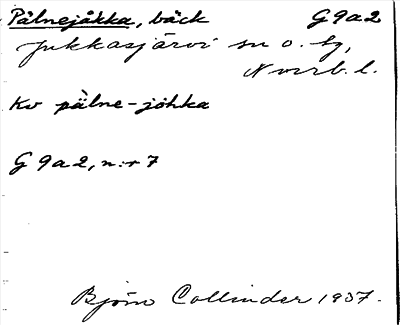 Pålnejåkka, bäck G 9 a 2
Jukkasjärvi sn o. tg,
Norrb. l.
Kv pàlne-jòhka
G 9 a 2, n:r 7
Björn Collinder 1937.